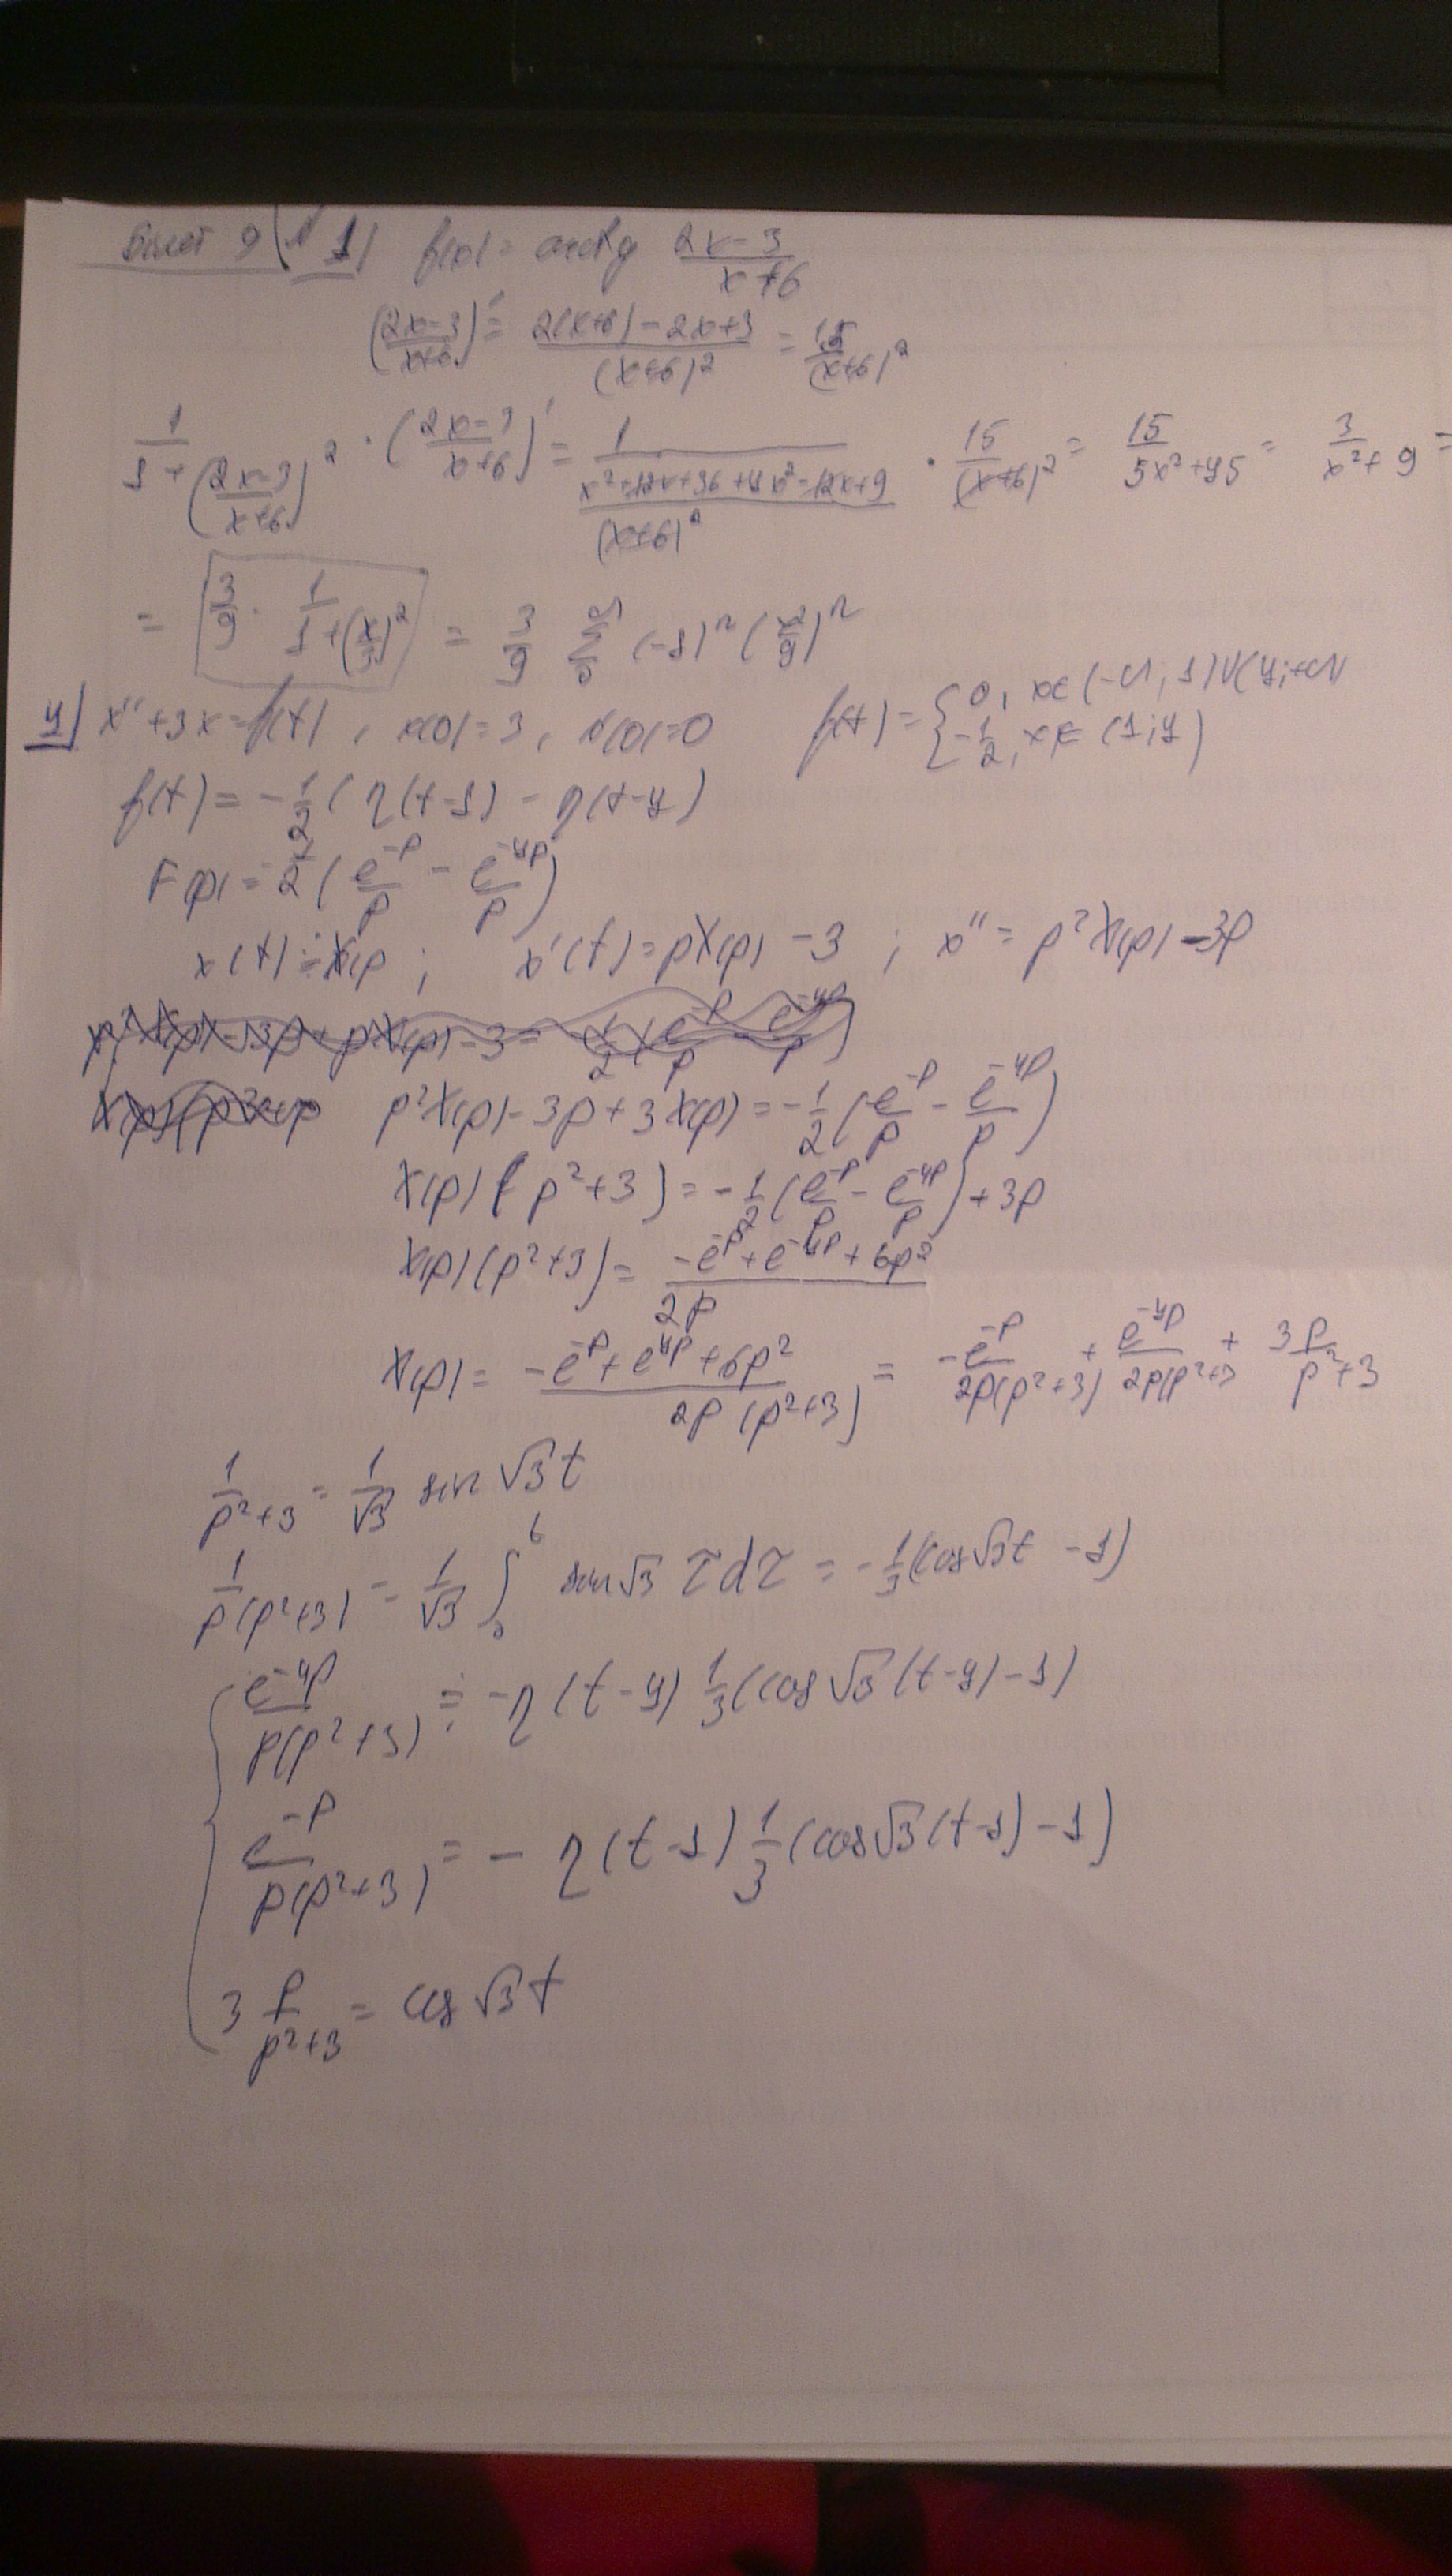 Билет 9 (№ 1) f(x) = arctg \frac{2x-3}{x+6}
(\frac{2x-3}{x+6})' = \frac{2(x+6)-2x+3}{(x+6)^2} = \frac{15}{(x+6)^2}
\frac{1}{1+(\frac{2x-3}{x+6})^2} · (\frac{2x-3}{x+6})' = \frac{1}{\frac{x^2+12x+36+4x^2-12x+9}{(x+6)^2}} · \frac{15}{(x+6)^2} = \frac{15}{5x^2+45} = \frac{3}{x^2+9} =
= \frac{3}{9} · \frac{1}{1+(\frac{x}{3})^2} = \frac{3}{9} (-1)^n (\frac{x^2}{9})^n
4) x''+3x=f(t), x(0)=3, x'(0)=0 f(t) = { 0, x∈(-∞, 1)∪(4;+∞)
-\frac{1}{2}, x∈(1;4)
f(t) = -\frac{1}{2}(η(t-1) - η(t-4)
F(p) = -\frac{1}{2}(\frac{e^{-p}}{p} - \frac{e^{-4p}}{p})
x(t) ≓ X(p ; x'(t) = pX(p) - 3 ; x'' = p^2X(p) - 3p
p^2X(p) - 3p + 3X(p) = -\frac{1}{2}(\frac{e^{-p}}{p} - \frac{e^{-4p}}{p})
X(p)(p^2+3) = -\frac{1}{2}(\frac{e^{-p}}{p} - \frac{e^{-4p}}{p}) + 3p
X(p)(p^2+3) = \frac{-e^{-p}+e^{-4p}+6p^2}{2p}
X(p) = \frac{-e^{-p}+e^{4p}+6p^2}{2p(p^2+3)} = \frac{-e^{-p}}{2p(p^2+3)} + \frac{e^{-4p}}{2p(p^2+3} + \frac{3p}{p^2+3}
\frac{1}{p^2+3} = \frac{1}{√3} sin √3t
\frac{1}{p(p^2+3)} = \frac{1}{√3} ∫_0^t sin √3 τdτ = -\frac{1}{3}(cos√3t - 1)
\frac{e^{-4p}}{p(p^2+3)} ≓ -η(t-4) \frac{1}{3}(cos √3(t-4)-1)
\frac{e^{-p}}{p(p^2+3)} = - η(t-1) \frac{1}{3}(cos√3(t-1)-1)
3 \frac{p}{p^2+3} = cos √3t